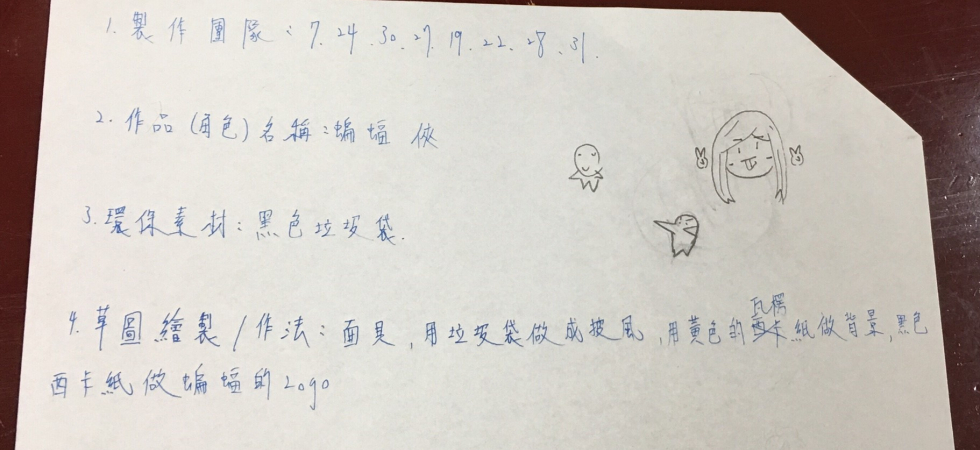 1. 製作團隊：7.24.30.27.19.22.28.31.
2. 作品(角色)名稱：蝙蝠俠
3. 環保素材：黑色垃圾袋.
4. 草圖繪製/作法：面具,用垃圾袋做成披風,用黃色的瓦楞紙做背景,黑色
西卡紙做蝙蝠的Logo